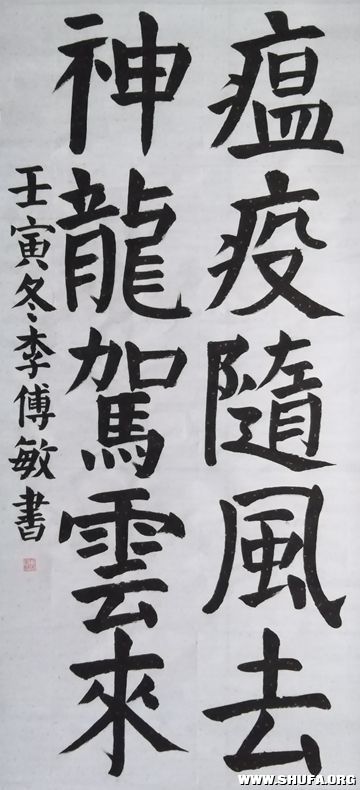 瘟疫隨風去
神龍駕雲來
壬寅冬李傅敏書
WWW.SHUFA.ORG